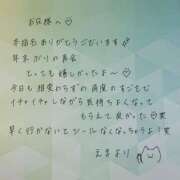 お兄様へ♡
本指名ありがとうございます
年末ぶりの再会
とっても嬉しかったよ〜♡
今日も相変わらずの角度のすごさで
イチャイチャしながら気持ちよくなって
もらえて良かった♡笑
早く行かないとシールなくなっちゃうよ笑
えまより